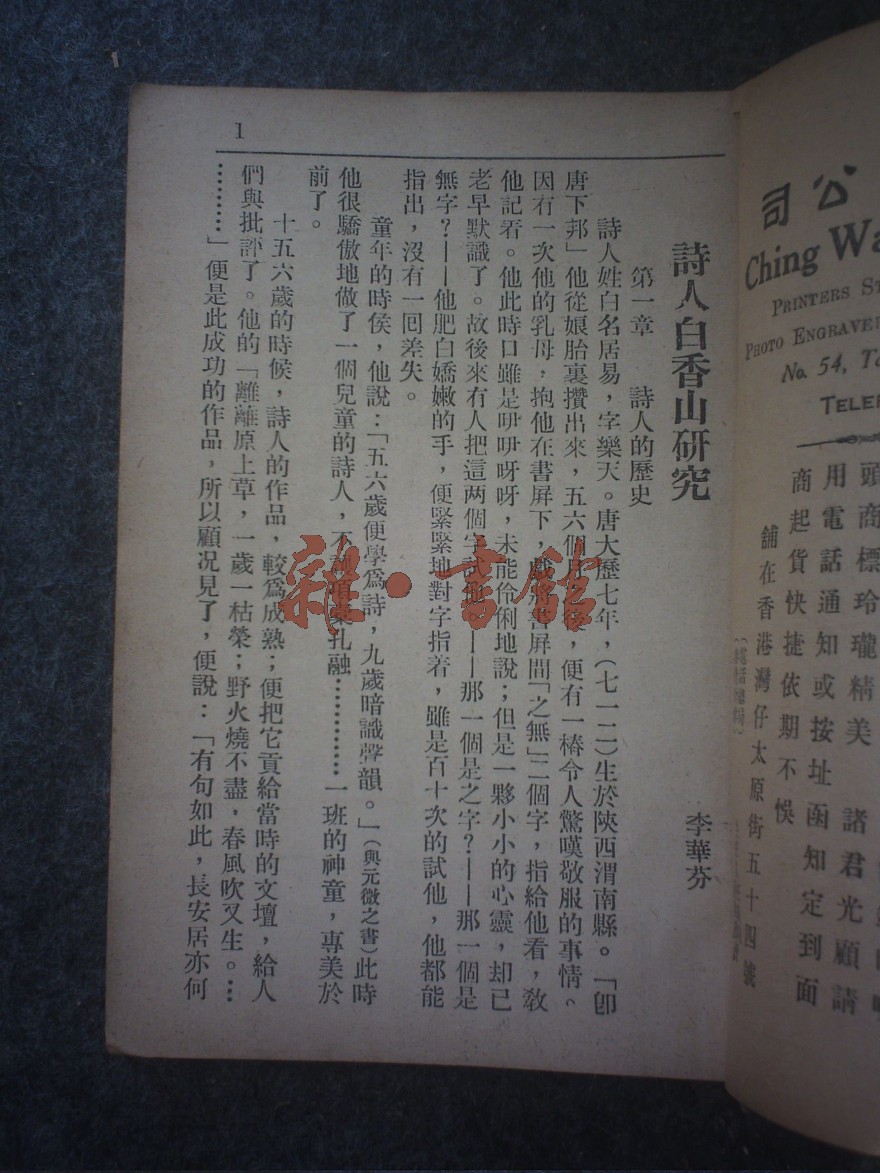 公司
Ching Wa
PRINTERS ST
PHOTO ENGRAVE
No. 54, Ta
TELE
頭商標玲瓏精美 諸君光顧請
用電話通知或按址函知定到面
商起貨快捷依期不悞
舖在香港灣仔太原街五十四號
1
詩人白香山研究
李華芬
第一章 詩人的歷史
詩人姓白名居易，字樂天。唐大歷七年，（七一二）生於陝西渭南縣。「卽
唐下邦」他從娘胎裏攢出來，五六個月之後，便有一樁令人驚嘆敬服的事情。
因有一次他的乳母，抱他在書屏下，戲將書屏間「之無」二個字，指給他看，敎
他記着。他此時口雖是吚吚呀呀，未能伶俐地說；但是一夥小小的心靈，却已
老早默識了。故後來有人把這两個字試他。——那一個是之字？——那一個是
無字？——他肥白嬌嫩的手，便緊緊地對字指着，雖是百十次的試他，他都能
指出，沒有一回差失。
童年的時侯，他說：「五六歲便學爲詩，九歲暗識聲韻。」（與元微之書）此時
他很驕傲地做了一個兒童的詩人，不讓項橐孔融…………一班的神童，專美於
前了。
十五六歲的時候，詩人的作品，較爲成熟；便把它貢給當時的文壇，給人
們與批評了。他的「離離原上草，一歲一枯榮；野火燒不盡，春風吹又生。…
………」便是此成功的作品，所以顧况見了，便說：「有句如此，長安居亦何
雜·書館